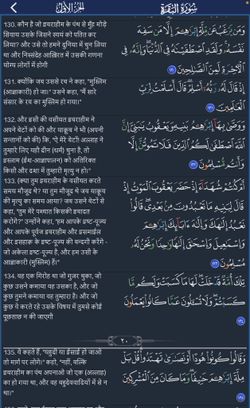 الجزء الأول
سورة البقرة
130. कौन है जो इबराहीम के पंथ से मुँह मोड़े
सिवाय उसके जिसने स्वयं को पतित कर
लिया? और उसे तो हमने दुनिया में चुन लिया
था और निस्संदेह आख़िरत में उसकी गणना
योग्य लोगों में होगी
131. क्योंकि जब उससे रब ने कहा, "मुस्लिम
(आज्ञाकारी) हो जा।" उसने कहा, "मैं सारे
संसार के रब का मुस्लिम हो गया।"
132. और इसी की वसीयत इबराहीम ने
अपने बेटों को की और याक़ूब ने भी (अपनी
सन्तानों को की) कि, "ऐ मेरे बेटों! अल्लाह ने
तुम्हारे लिए यही दीन (धर्म) चुना है, तो
इस्लाम (ईश-आज्ञापालन) को अतिरिक्त
किसी और दशा में तुम्हारी मृत्यु न हो।"
133. (क्या तुम इबराहीम के वसीयत करते
समय मौजूद थे? या तुम मौजूद थे जब याक़ूब
की मृत्यु का समय आया? जब उसने बेटों से
कहा, "तुम मेरे पश्चात किसकी इबादत
करोगे?" उन्होंने कहा, "हम आपके इष्ट-पूज्य
और आपके पूर्वज इबराहीम और इसमाईल
और इसहाक़ के इष्ट-पूज्य की बन्दगी करेंगे-
जो अकेला इष्ट-पूज्य है, और हम उसी के
आज्ञाकारी (मुस्लिम) हैं।"
134. वह एक गिरोह था जो गुज़र चुका, जो
कुछ उसने कमाया वह उसका है, और जो
कुछ तुमने कमाया वह तुम्हारा है। और जो
कुछ वे करते रहे उसके विषय में तुमसे कोई
पूछताछ न की जाएगी
وَمَن يَرْغَبُ عَن مِّلَّةِ إِبْرَٰهِـۧمَ إِلَّا مَن سَفِهَ
نَفْسَهُۥ وَلَقَدِ ٱصْطَفَيْنَـٰهُ فِى ٱلدُّنْيَا وَإِنَّهُۥ فِى
ٱلْـَٔاخِرَةِ لَمِنَ ٱلصَّـٰلِحِينَ ١٣٠
إِذْ قَالَ لَهُۥ رَبُّهُۥٓ أَسْلِمْ قَالَ أَسْلَمْتُ لِرَبِّ
ٱلْعَـٰلَمِينَ ١٣١
وَوَصَّىٰ بِهَآ إِبْرَٰهِـۧمُ بَنِيهِ وَيَعْقُوبُ يَـٰبَنِىَّ إِنَّ
ٱللَّهَ ٱصْطَفَىٰ لَكُمُ ٱلدِّينَ فَلَا تَمُوتُنَّ إِلَّا
وَأَنتُم مُّسْلِمُونَ ١٣٢
أَمْ كُنتُمْ شُهَدَآءَ إِذْ حَضَرَ يَعْقُوبَ ٱلْمَوْتُ إِذْ
قَالَ لِبَنِيهِ مَا تَعْبُدُونَ مِنۢ بَعْدِى قَالُوا۟
نَعْبُدُ إِلَـٰهَكَ وَإِلَـٰهَ ءَابَآئِكَ إِبْرَٰهِـۧمَ
وَإِسْمَـٰعِيلَ وَإِسْحَـٰقَ إِلَـٰهًا وَٰحِدًا وَنَحْنُ لَهُۥ
مُسْلِمُونَ ١٣٣
تِلْكَ أُمَّةٌ قَدْ خَلَتْ لَهَا مَا كَسَبَتْ وَلَكُم مَّا
كَسَبْتُمْ وَلَا تُسْـَٔلُونَ عَمَّا كَانُوا۟ يَعْمَلُونَ
١٣٤
٢٠
135. वे कहते हैं, "यहूदी या ईसाई हो जाओ
तो मार्ग पा लोगे।" कहो, "नहीं, बल्कि
इबराहीम का पंथ अपनाओ जो एक (अल्लाह)
का हो गया था, और वह बहुदेववादियों में से
न था।"
وَقَالُوا۟ كُونُوا۟ هُودًا أَوْ نَصَـٰرَىٰ تَهْتَدُوا۟ قُلْ بَلْ
مِلَّةَ إِبْرَٰهِـۧمَ حَنِيفًا وَمَا كَانَ مِنَ ٱلْمُشْرِكِينَ
١٣٥